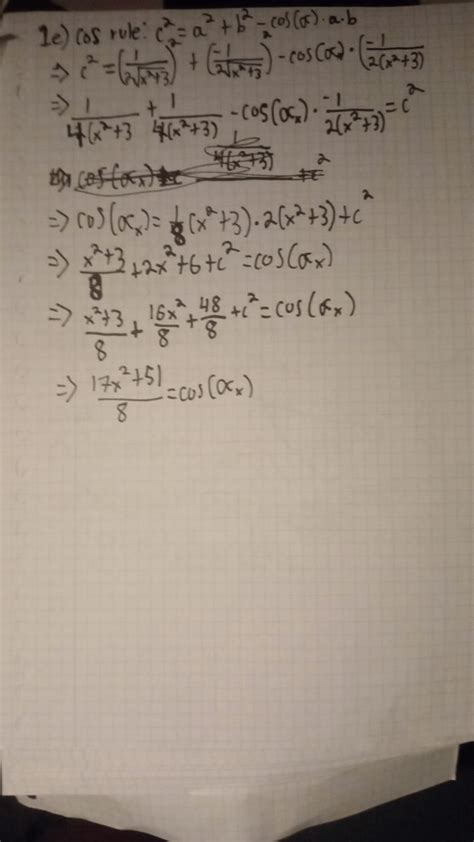 1c) cos rule: c² = a² + b² - cos(α)·a·b
=> c² = (1/(2√(x²+3)))² + (-1/(2√(x²+3)))² - cos(α)·(-1/(2(x²+3))
=> 1/(4(x²+3) + 1/(4(x²+3)) - cos(αₓ)·-1/(2(x²+3)) = c²
=> cos(αₓ) = 1/8(x²+3)·2(x²+3)+c²
=> (x²+3)/8 + 2x²+6+c² = cos(αₓ)
=> (x²+3)/8 + 16x²/8 + 48/8 + c² = cos(αₓ)
=> (17x²+51)/8 = cos(αₓ)